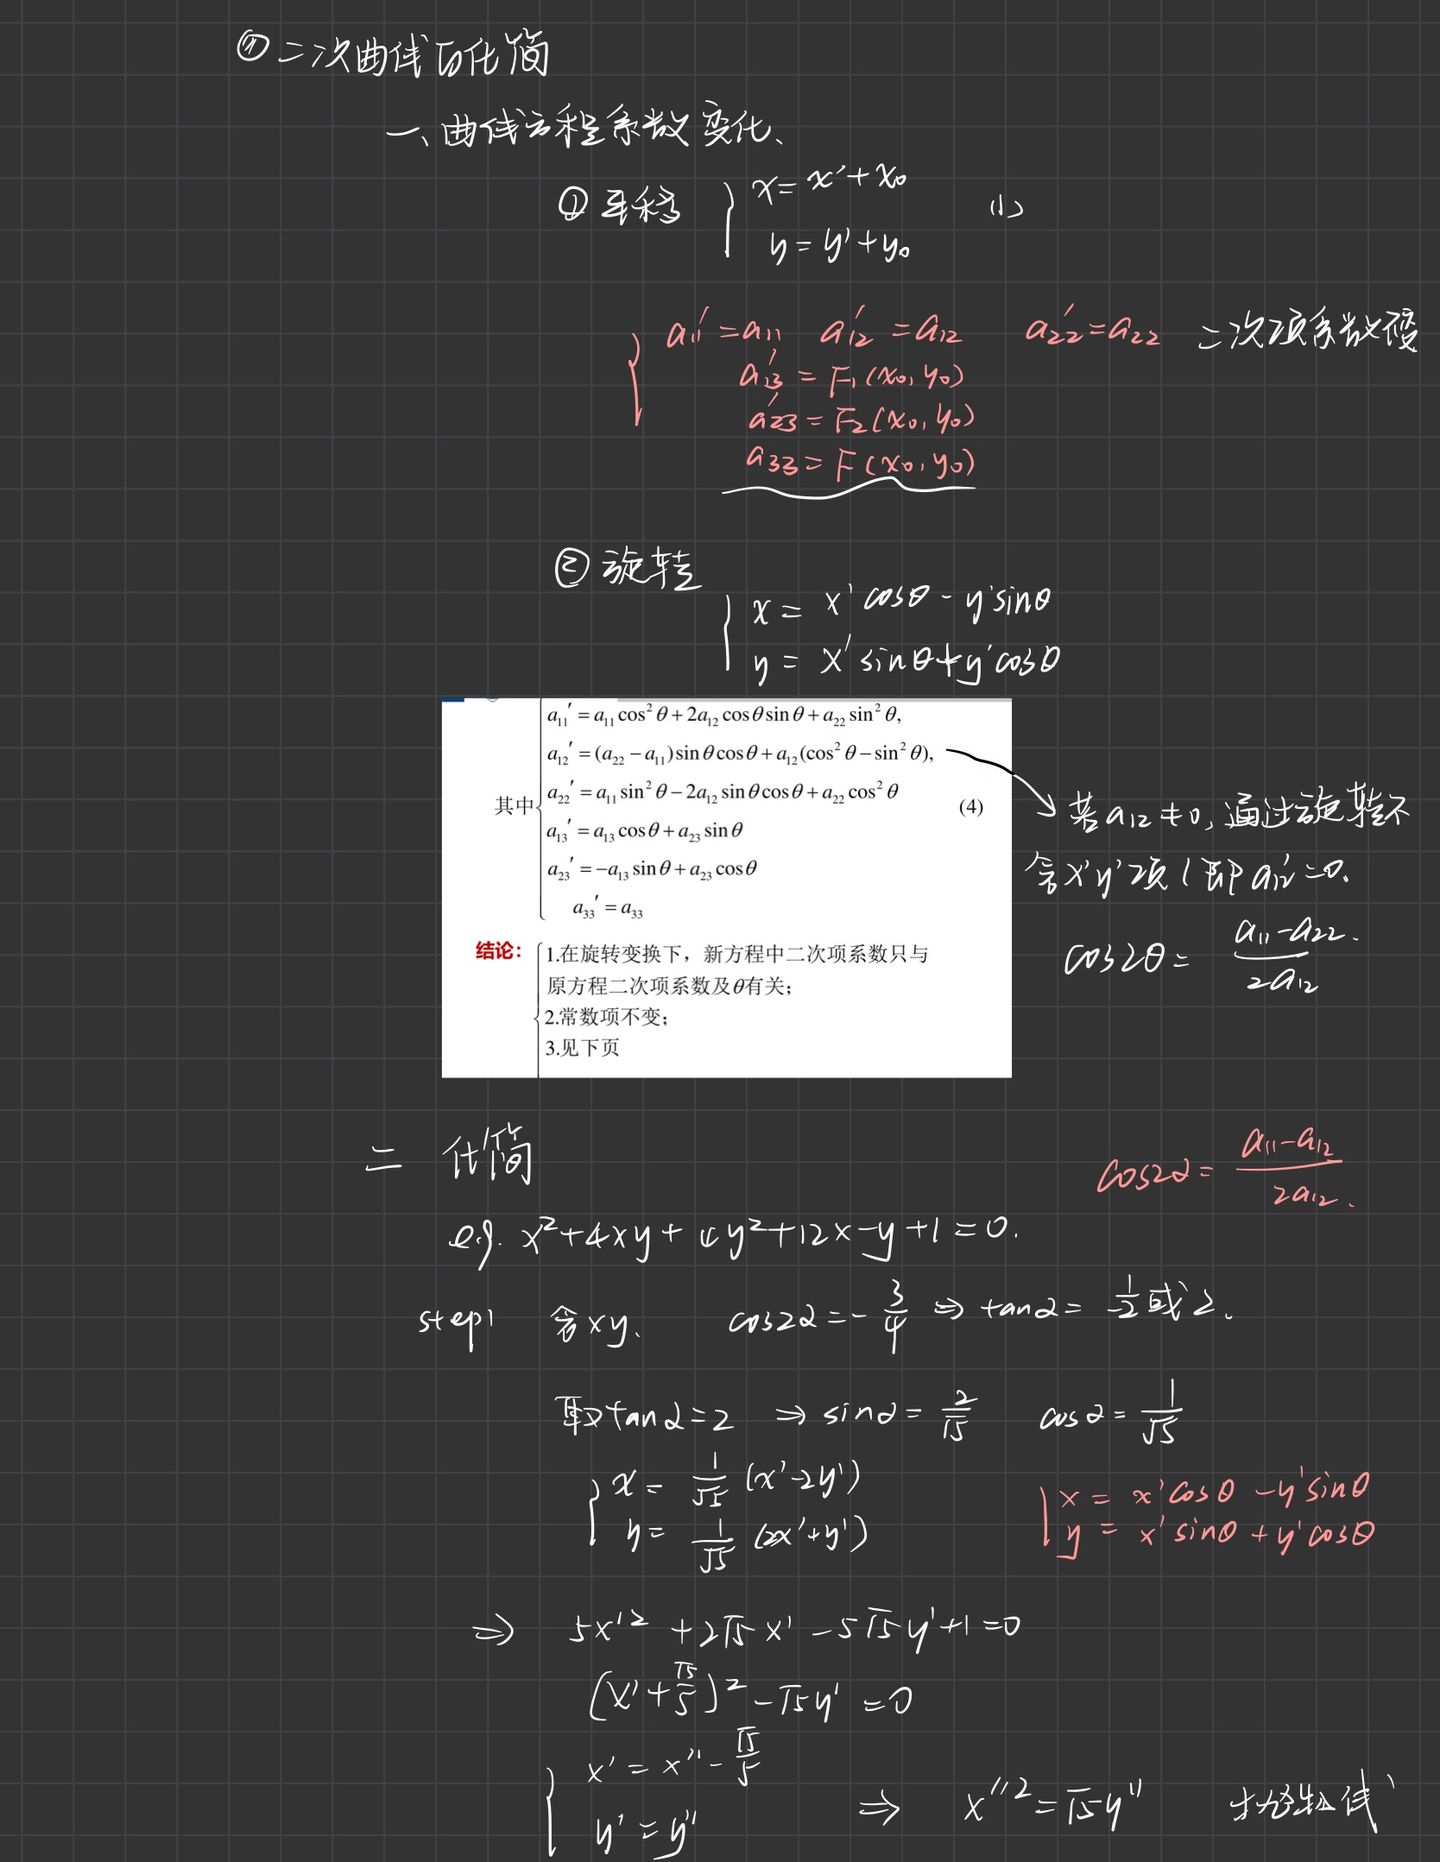 ⑦ 二次曲线的化简
一、曲线方程系数变化、
① 平移 { x = x' + x₀
y = y' + y₀ (1)
{ a₁₁' = a₁₁ a₁₂' = a₁₂ a₂₂' = a₂₂ 二次项系数不变
a₁₃' = F₁(x₀, y₀)
a₂₃' = F₂(x₀, y₀)
a₃₃ = F(x₀, y₀)
② 旋转
{ x = x'cosθ - y'sinθ
y = x'sinθ + y'cosθ
其中 { a₁₁' = a₁₁cos²θ + 2a₁₂cosθsinθ + a₂₂sin²θ,
a₁₂' = (a₂₂ − a₁₁)sinθcosθ + a₁₂(cos²θ − sin²θ),
a₂₂' = a₁₁sin²θ − 2a₁₂sinθcosθ + a₂₂cos²θ (4)
a₁₃' = a₁₃cosθ + a₂₃sinθ
a₂₃' = −a₁₃sinθ + a₂₃cosθ
a₃₃' = a₃₃
若a₁₂≠0, 通过旋转不
含x'y'项(即a₁₂'=0.
cos2θ = (a₁₁-a₂₂)/2a₁₂
结论: { 1.在旋转变换下，新方程中二次项系数只与
原方程二次项系数及θ有关；
2.常数项不变；
3.见下页
二 化简
cos2α = (a₁₁-a₁₂)/2a₁₂.
e.g. x²+4xy+4y²+12x-y+1=0.
step1 含xy. cos2α = -3/4 ⇒ tanα = -1/2 或 2.
取tanα=2 ⇒ sinα = 2/√5 cosα = 1/√5
{ x = 1/√5 (x'-2y')
y = 1/√5 (2x'+y')
{ x = x'cosθ - y'sinθ
y = x'sinθ + y'cosθ
⇒ 5x'² + 2√5x' - 5√5y' + 1 = 0
(x' + √5/5)² - √5y' = 0
{ x' = x'' - √5/5
y' = y'' ⇒ x''² = √5y'' 抛物线